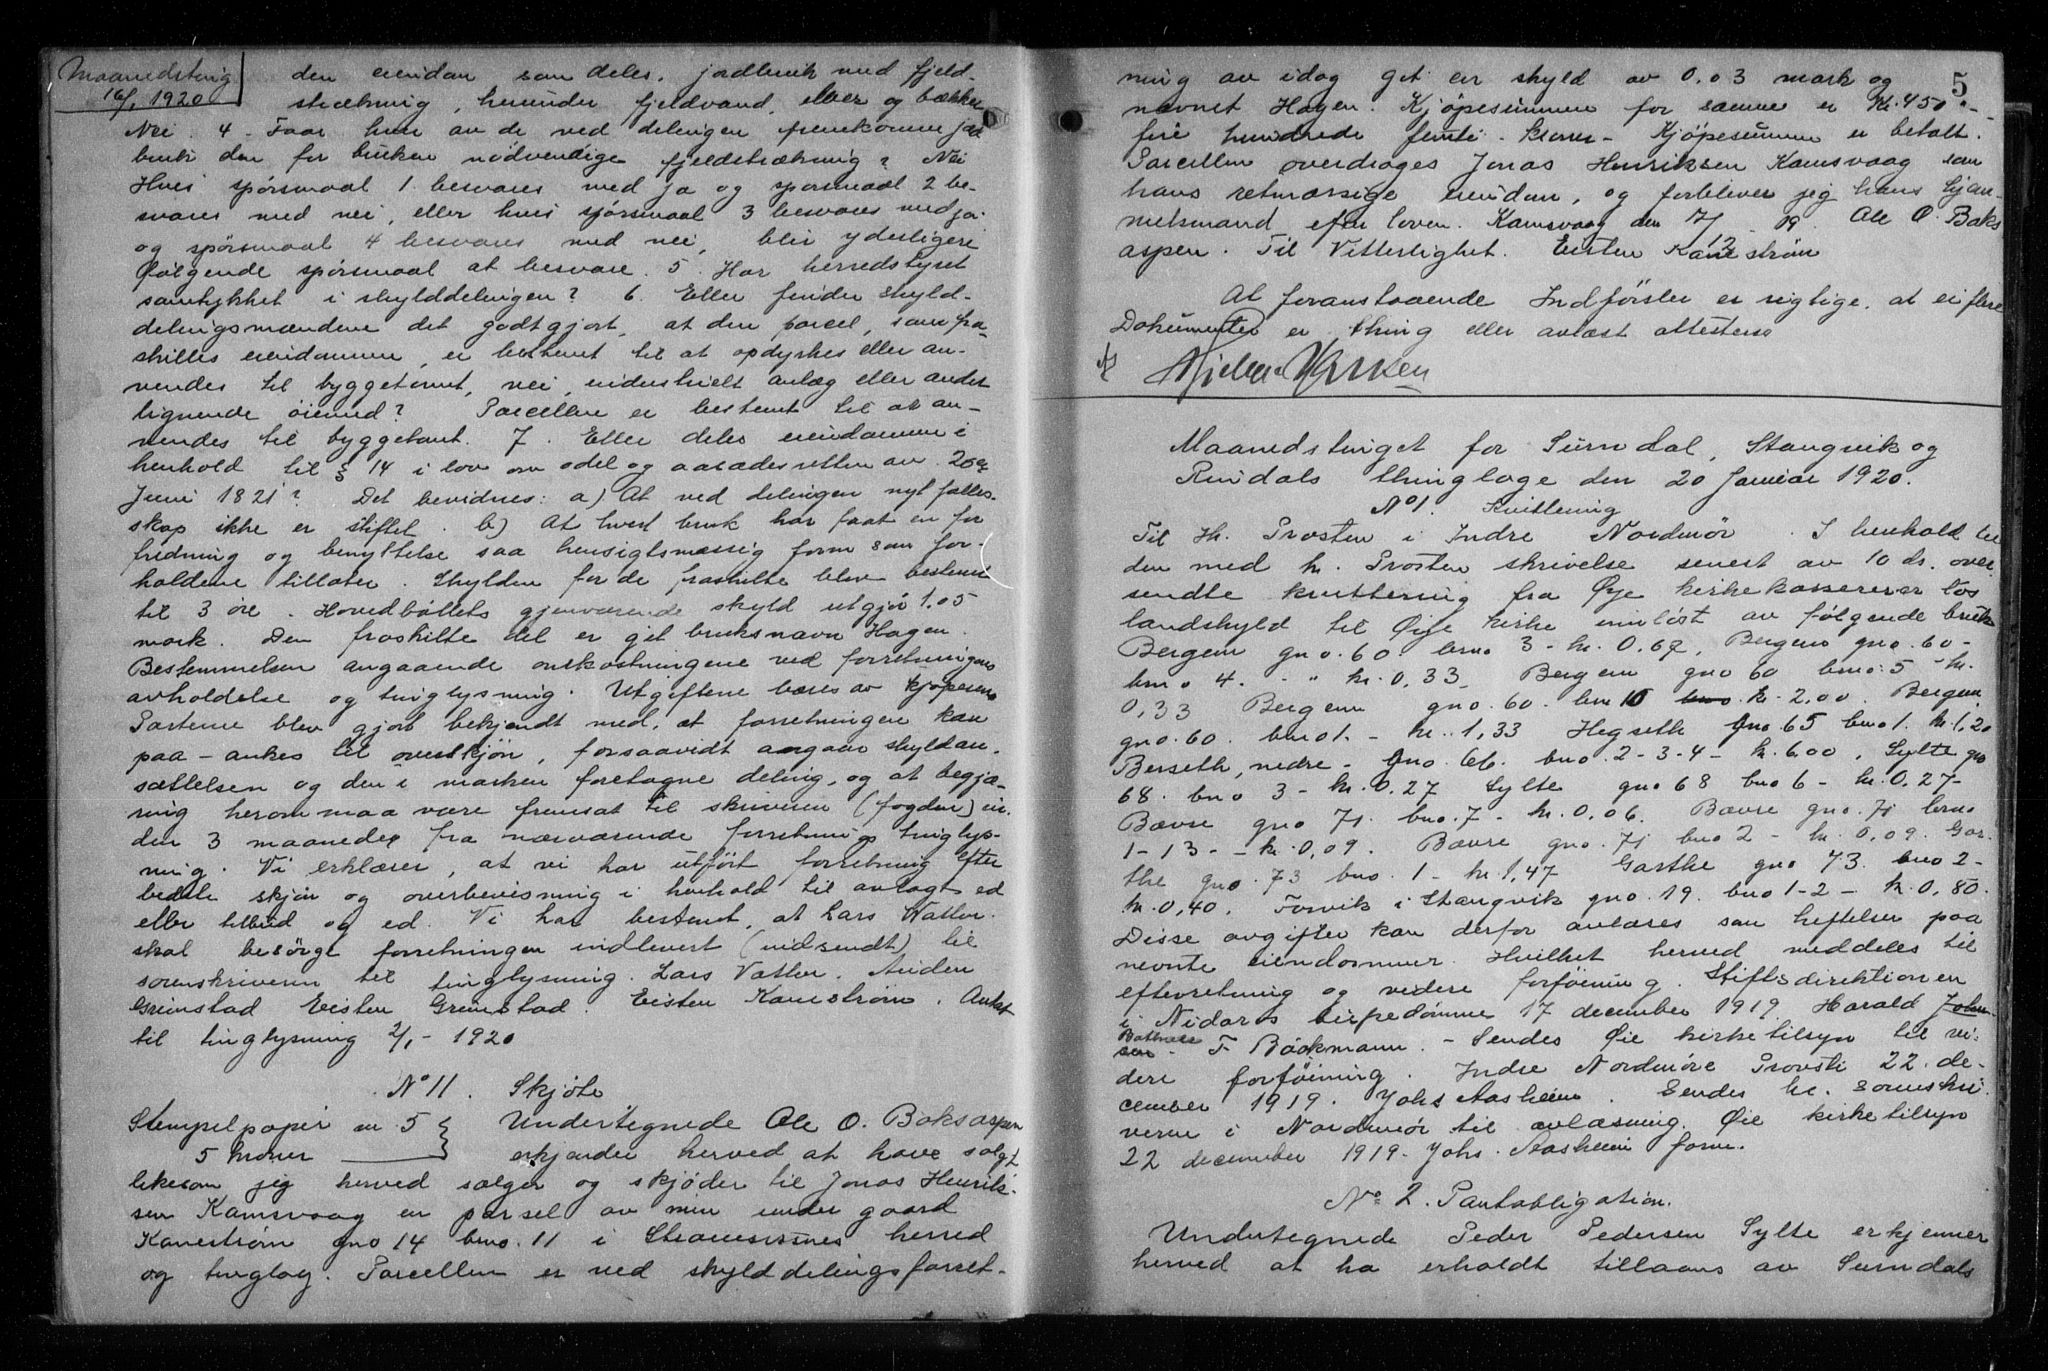 Maanedsting
16/1 1920
den eiendom som deles, jordbruk med fjeld-
strækning, herunder fjeldvand, elver og bækker
Nei. 4. Faar hver av de ved delingen fremkomne jor
bruk den for bruken nødvendige fjeldstrækning? Nei
Hvis spörsmaal 1 besvares med ja og spörsmaal 2 be-
svares med nei, eller hvis spörsmaal 3 besvares med ja
og spörsmaal 4 besvares med nei, blir yderligere
følgende spörsmaal at besvare. 5. Har herredstyret
samtykket i skylddelingen? 6. Eller finder skyld-
delingsmændene det godtgjort, at den parcel, som fra-
skilles eiendommen, er bestemt til at opdyrkes eller an-
vendes til byggetomt, vei, industrielt anlæg eller andet
lignende öiemed? Parcellen er bestemt til at an-
vendes til byggetomt. 7. Eller deles eiendommen i
henhold til § 14 i lov om odel og aasædesretten av 26de
Juni 1821? Det bevidnes: a) At ved delingen nyt fælles-
skap ikke er stiftet. b) At hvert bruk har faat en for
fredning og benyttelse saa hensigtsmæssig form som for-
holdene tillater. Skylden for de fraskilte blev bestemt
til 3 öre. Hovedbölets gjenværende skyld utgjör 1.05
mark. Den fraskilte del er git bruksnavn Hagen.
Bestemmelsen angaaende omkostningene ved forretningens
avholdelse og tinglysning. Utgiftene bæres av kjøperen
Parterne blev gjort bekjendt med, at forretningen kan
paa-ankes til overskjön, forsaavidt angaar skyldan-
sættelsen og den i marken foretagne deling, og at begjæ-
ring herom maa være fremsat til skriveren (fogden) in-
den 3 maaneder fra nærværende forretnings tinglys-
ning. Vi erklærer, at vi har utført forretning efter
bedste skjön og overbevisning i henhold til avlagt ed
eller tilbud og ed. Vi har bestemt, at Lars Vatten
skal besörge forretningen indlevert (indsendt) til
sorenskriveren til tinglysning. Lars Vatten. Anden
Grimstad Eisten Grimstad. Eisten Kanestrøm. Ankst
til tinglysning 2/1 - 1920
No 11. Skjöte
Stempelpapir m 5 Undertegnede Ole O. Boksaspen
5 kroner erkjender herved at have solgt
likesom jeg herved sælger og skjøder til Jonas Henrik-
sen Kamsvaag en parsel av min under gaard
Kanestrøm gno 14 bno. 11 i Straumsnes herred
og tinglag. Parcellen er ved skylddelingsforret-
5
ning av idag git en skyld av 0.03 mark og
nævnet Hagen. Kjöpesummen for samme er kr. 450.-
fire hundrede femti - kroner - Kjöpesummen er betalt.
Parcellen overdrages Jonas Henriksen Kamsvaag som
hans retmæssige eiendom, og forbliver jeg hans hjem-
melsmand efter loven. Kamsvaag den 7/12 19. Ole O. Boks
aspen. Til Vitterlighet. Eisten Kanestrøm
At foranstaaende Indförsler er rigtige, at ei flere
Dokumenter er thing eller avlæst attesteres
Maanedstinget for Surndal, Stangvik og
Rindals thinglage den 20 Januar 1920.
No 1. Kvittering
Til Hr. Prosten i Indre Nordmör. I henhold til
den med hr. Prosten skrivelse senest av 10 ds. over
sendte kvittering fra Øye kirkekasserer er løs
landskyld til Øije kirke innløst av følgende bruk
Bergem gno. 60 bno 3 - kr. 0.67, Bergem gno. 60 -
bno 4. - " kr. 0,33 Bergem gno 60 bno 5 - kr.
0,33 Bergem gno. 60. bno 10 kr. 2,00. Bergem
gno. 60. bno 1. - kr. 1,33 Hegseth gno. 65 bno 1. kr. 1,20
Berseth, nedre - gno. 66. bno. 2-3-4 - kr. 6.00, Sylte gno
68. bno 3 - kr. 0.27 Sylte gno 68 bno 6 - kr. 0,27 -
Bævre gno 71. bno. 7 - kr. 0,06. Bævre gno. 71 bno
1-13 - kr. 0,09. Bævre gno. 71 bno 2 - kr. 0,09. Gar-
the gno. 73 bno. 1 - kr. 1,47 Garthe gno 73. bno 2 -
kr. 0,40. Torvik i Stangvik gno. 19. bno 1-2 - kr. 0,80.
Disse avgifter kan derfor avlæses som heftelser paa
nevnte eiendommer. Hvilket herved meddeles til
efterretning og videre forföining. Stiftsdirektionen
i Nidaros bispedømme 17 december 1919. Harald
Bothner
T. Böckmann. - Sendes Øie kirketilsyn til vi-
dere forföining. Indre Nordmöre Provsti 22. de-
cember 1919. Johs Aasheim. Sendes hr. sorenskri
veren i Nordmör til avlæsning. Øie kirketilsyn
22 december 1919. Johs. Aasheim form.
No 2. Pantobligation.
Undertegnede Peder Pedersen Sylte erkjenner
herved at ha erholdt tillaans av Surndals